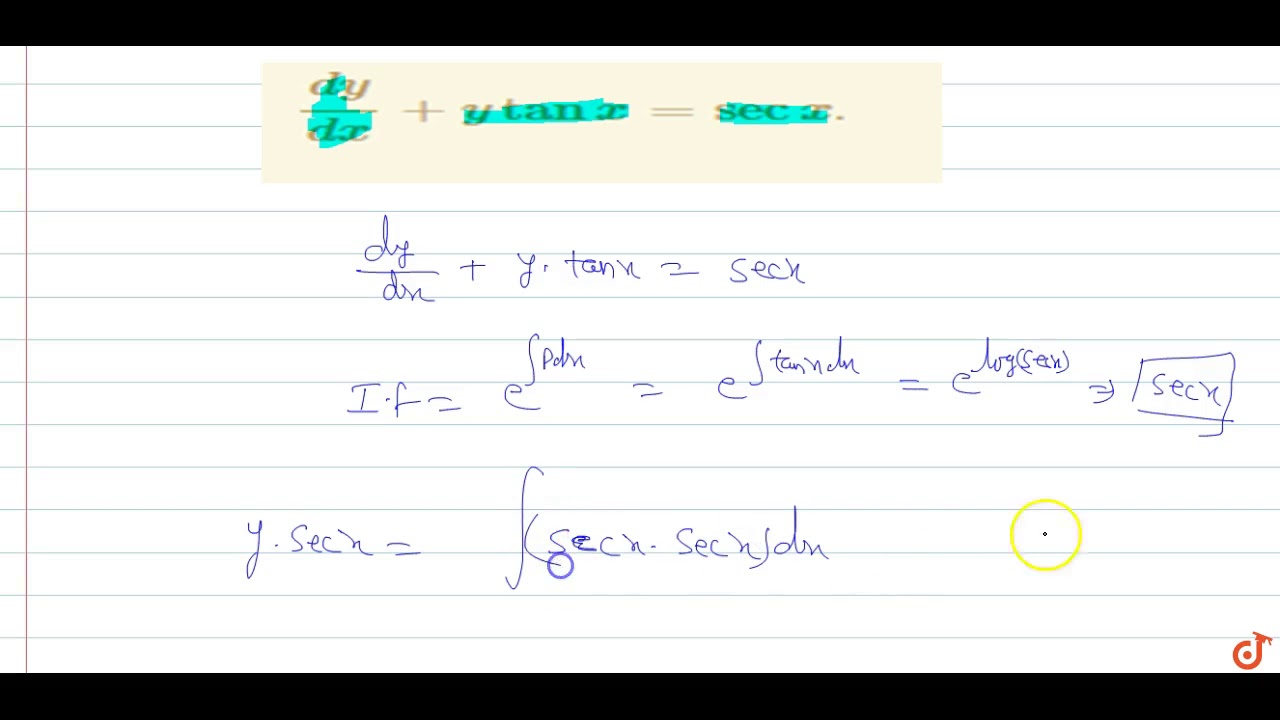 dy/dx + y tan x = sec x.
dy/dx + y. tanx = secx
I.f = e^∫Pdx = e^∫tanxdx = e^log(secx) ⇒ secx
y. secx = ∫(secx. secx)dx